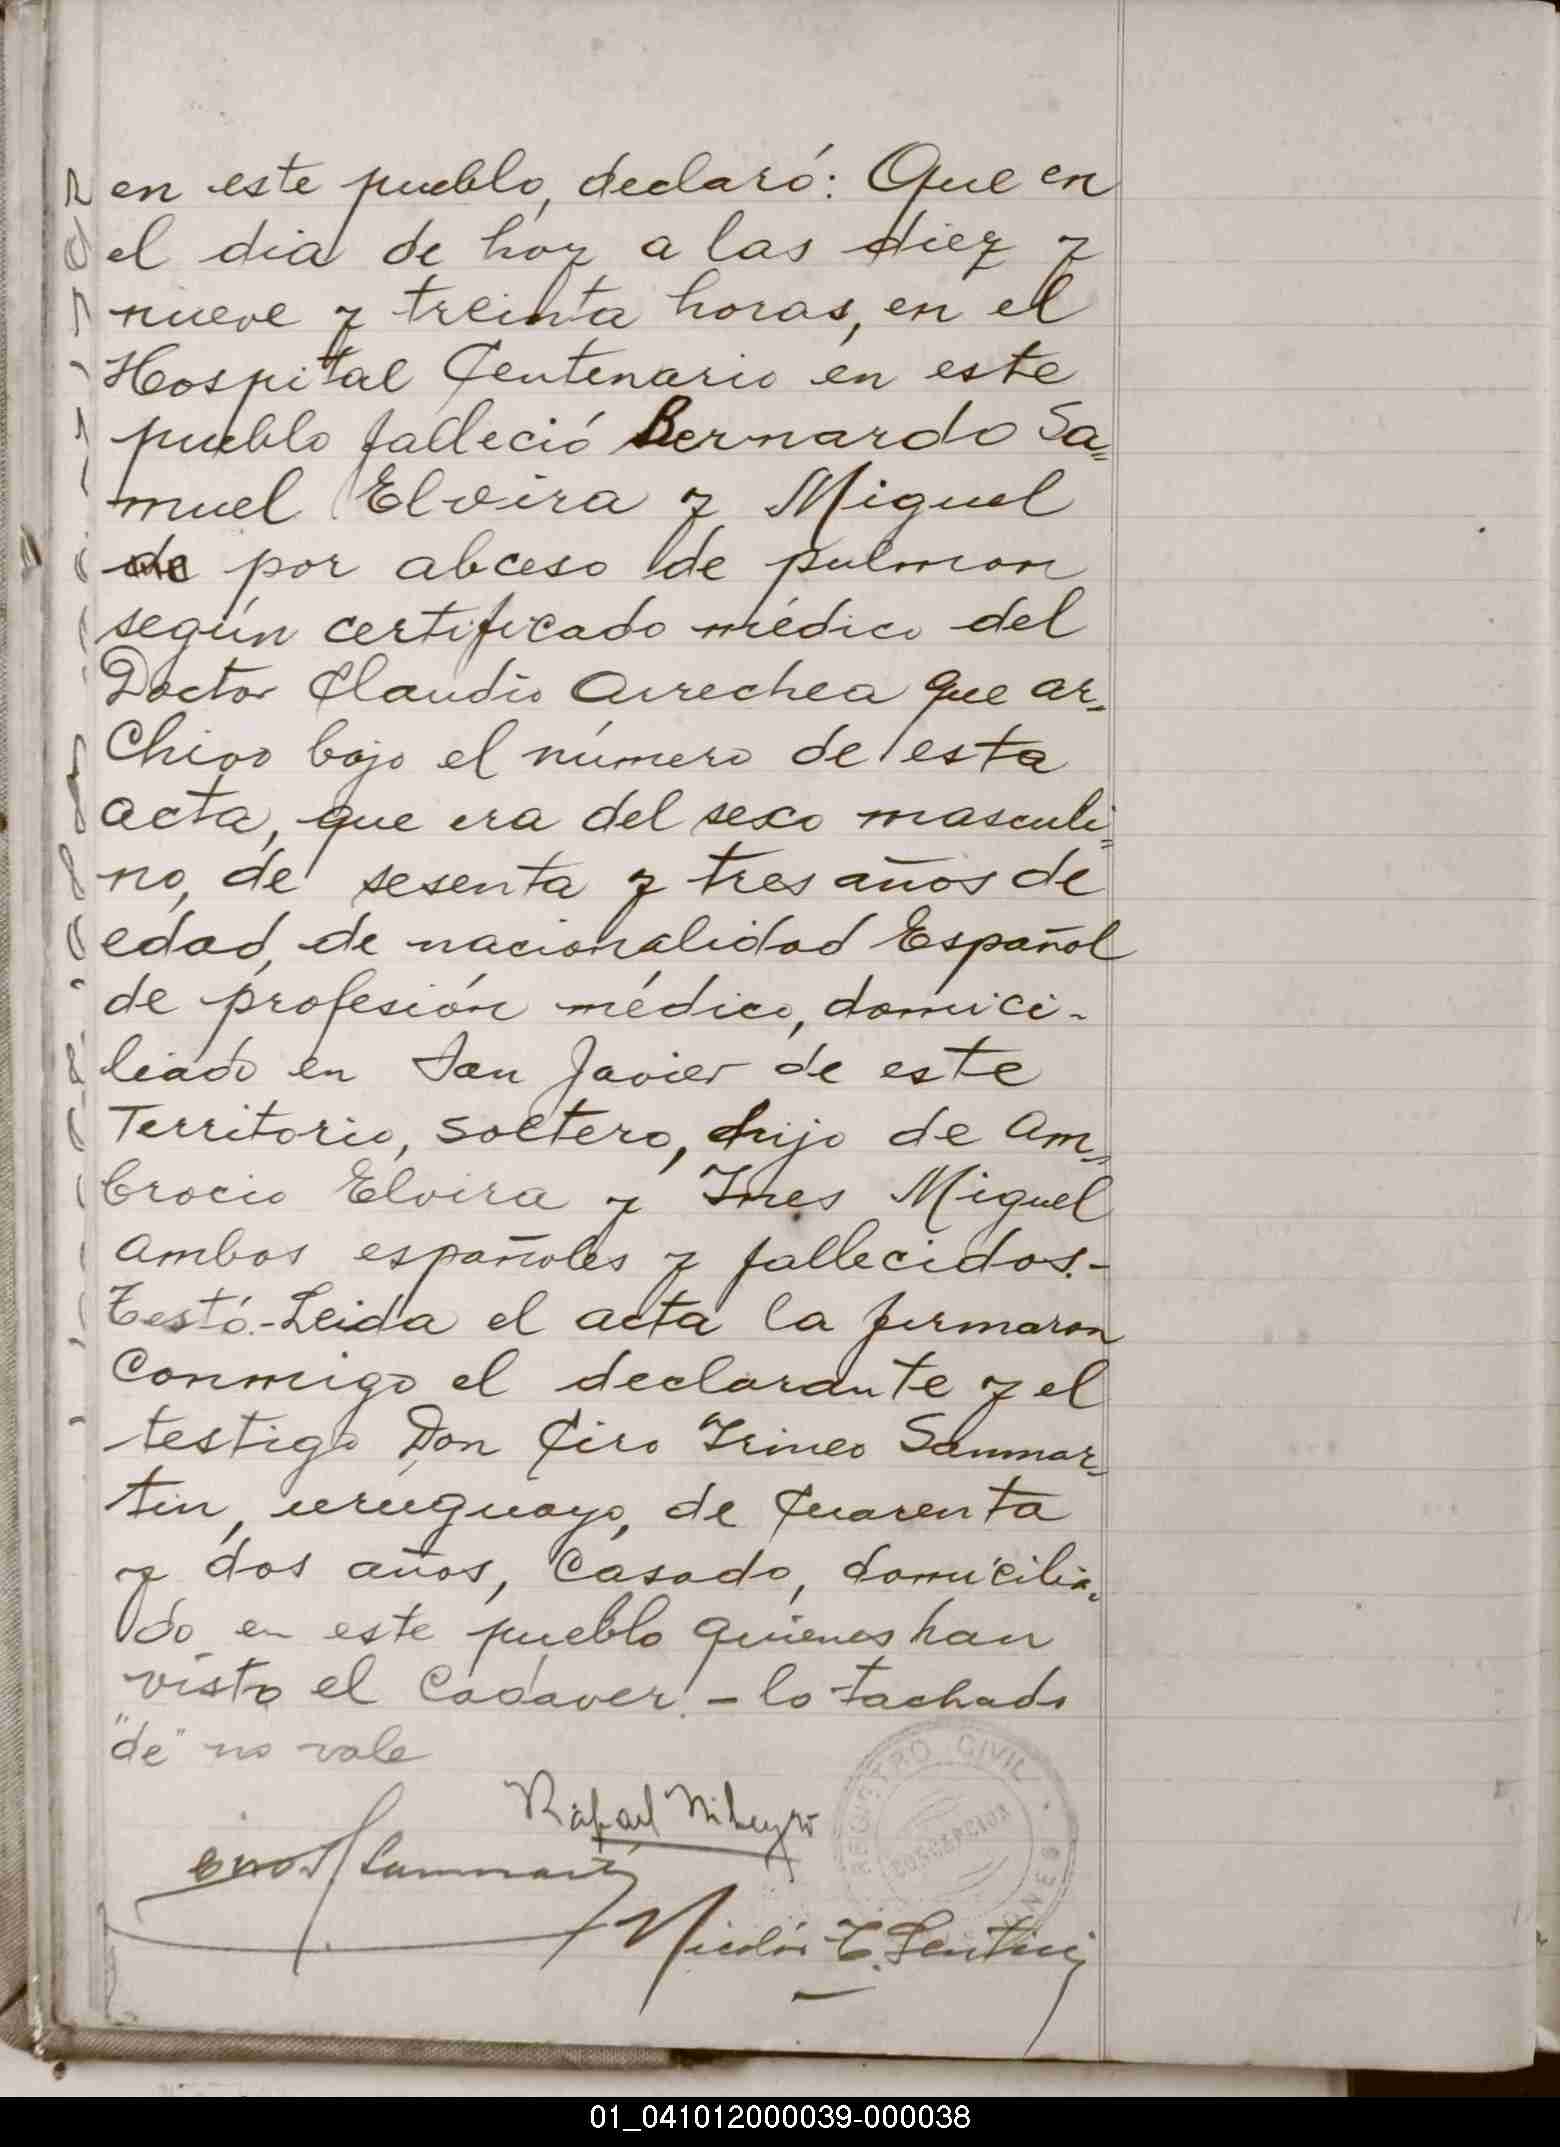 en este pueblo, declaró: Que en
el dia de hoy a las diez y
nueve y treinta horas, en el
Hospital Centenario en este
pueblo falleció Bernardo Sa=
muel Elvira y Miguel
de por abceso de pulmon
según certificado médico del
Doctor Claudio Arrechea que ar=
chivo bajo el número de esta
acta, que era del sexo masculi=
no, de sesenta y tres años de
edad, de nacionalidad Español
de profesión médico, domici-
liado en San Javier de este
Territorio, soltero, hijo de Am=
brocio Elvira y Ines Miguel
ambos españoles y fallecidos.-
Testó.- Leida el acta la firmaron
conmigo el declarante y el
testigo Don Ciro Irineo Sanmar=
tin, uruguayo, de cuarenta
y dos años, casado, domicilia=
do en este pueblo quienes han
visto el cadaver. - lo tachado
"de" no vale
Rafael
REGISTRO CIVIL
CONCEPCION
Nicolás
01_041012000039-000038